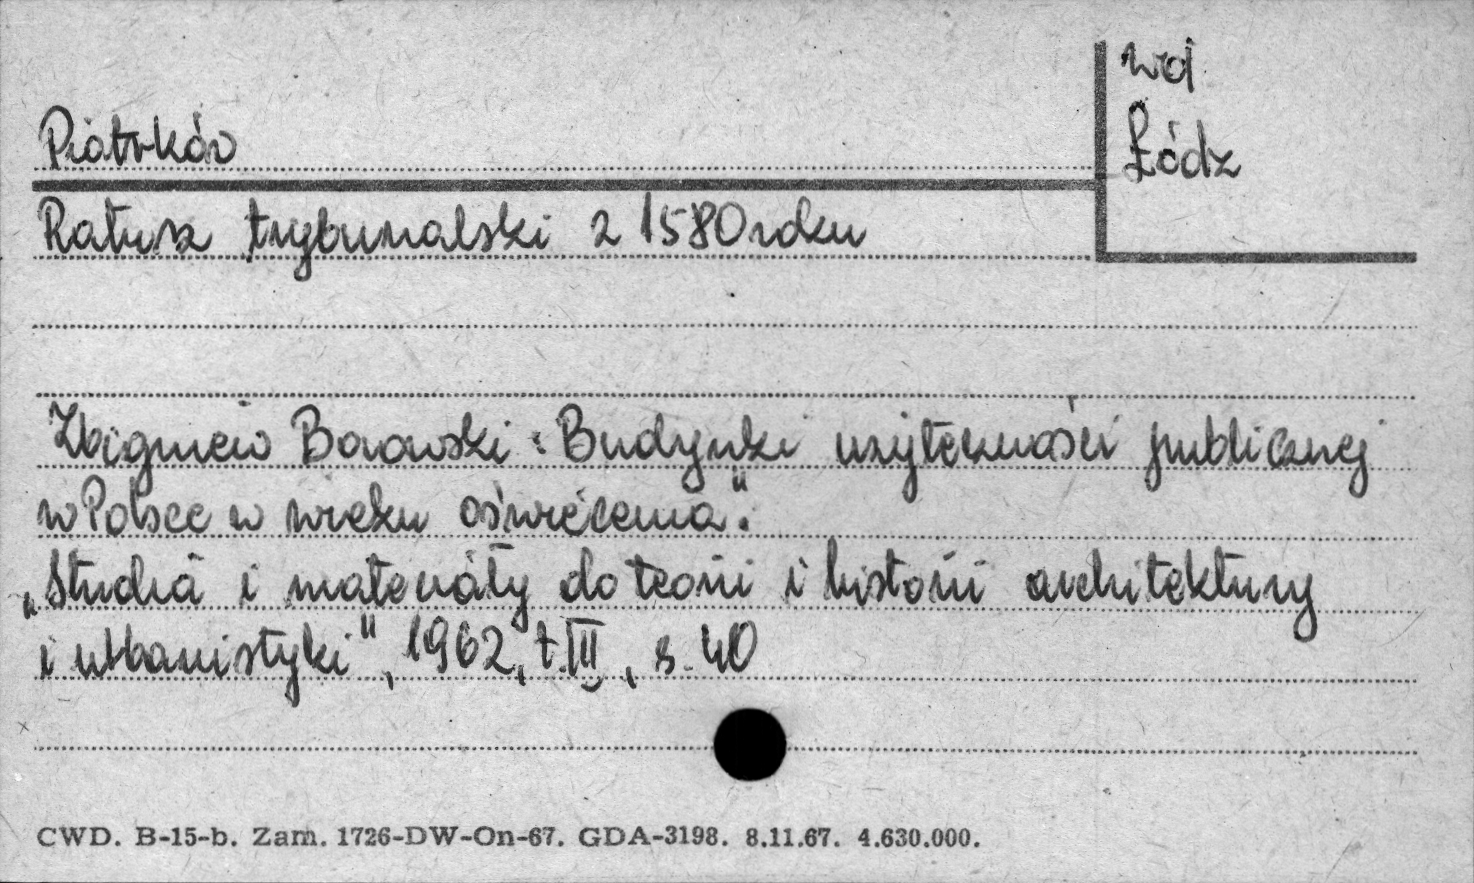 woj
Łódz
Piotrków
Ratusz trybunalski z 1580 roku
Zbigniew Borowski: Budynki użyteczności publicznej
w Polsce w wieku oświecenia".
„Studia i materiały do teorii i historii architektury
i urbanistyki", 1962, t. III, s. 40
CWD. B-15-b. Zam. 1726-DW-On-67. GDA-3198. 8.11.67. 4.630.000.